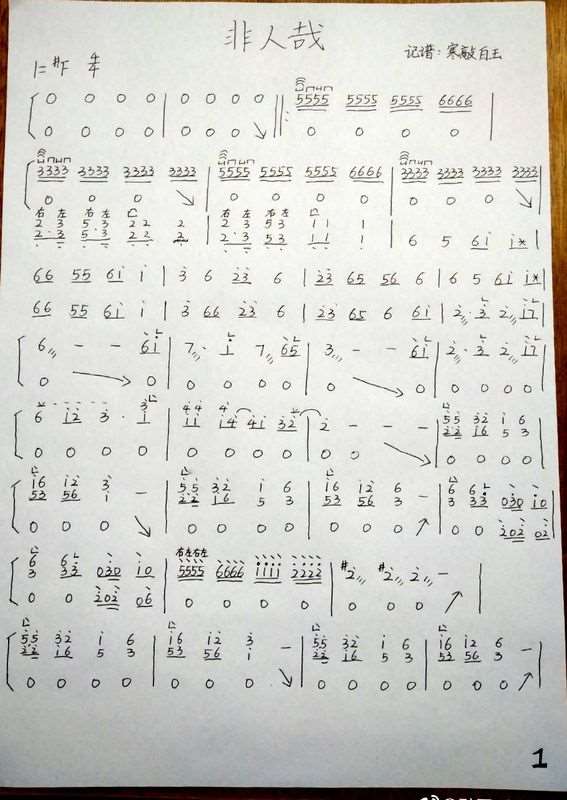 非人哉
记谱:寒敲白玉
1=#F 4/4
0 0 0 0 | 0 0 0 0 ‖: 5555 5555 5555 6666 |
0 0 0 0 | 0 0 0 0 ‖: 0 0 0 0 |
3333 3333 3333 3333 | 5555 5555 5555 6666 | 3333 3333 3333 3333 |
0 0 0 | 0 0 0 0 | 0 0 0 0 |
右 左 右 左 右 左 右左
2·3 5·3 22 2 | 2·3 53 11 1 | 6 5 61 1* |
2·3 5·3 22 2 | 2·3 53 11 1 |
66 55 61 1 | 3 6 23 6 | 23 65 56 6 | 6 5 61 1* |
66 55 61 1 | 3 66 23 6 | 23 65 6 61 | 2·3 2 17 |
6 - - 61 | 7· 1 7 65 | 3 - - 61 | 2·3 2 17 |
0 0 | 0 0 0 0 | 0 0 | 0 0 0 0 |
6 12 3· 1 | 11 14 41 32 | 2 - - - | 55 32 1 6 |
22 16 5 3
0 0 0 0 | 0 0 0 0 | 0 0 | 0 0 0 0 |
16 12 3 - | 55 32 1 6 | 16 12 6 - | 6 63 030 10 |
53 56 1 | 22 16 5 3 | 53 56 3 | 3 33
0 0 0 | 0 0 0 0 | 0 0 0 | 0 0 202 02 |
6 63 030 10 | 右左右左 5555 6666 1111 2222 | #2 #2 2 - |
3 33
0 0 202 06 | 0 0 0 0 | 0 0 0 |
55 32 1 6 | 16 12 3 - | 55 32 1 6 | 16 12 6 - |
22 16 5 3 | 53 56 1 | 22 16 5 3 | 53 56 3 |
0 0 0 0 | 0 0 0 | 0 0 0 0 | 0 0 0 |
1